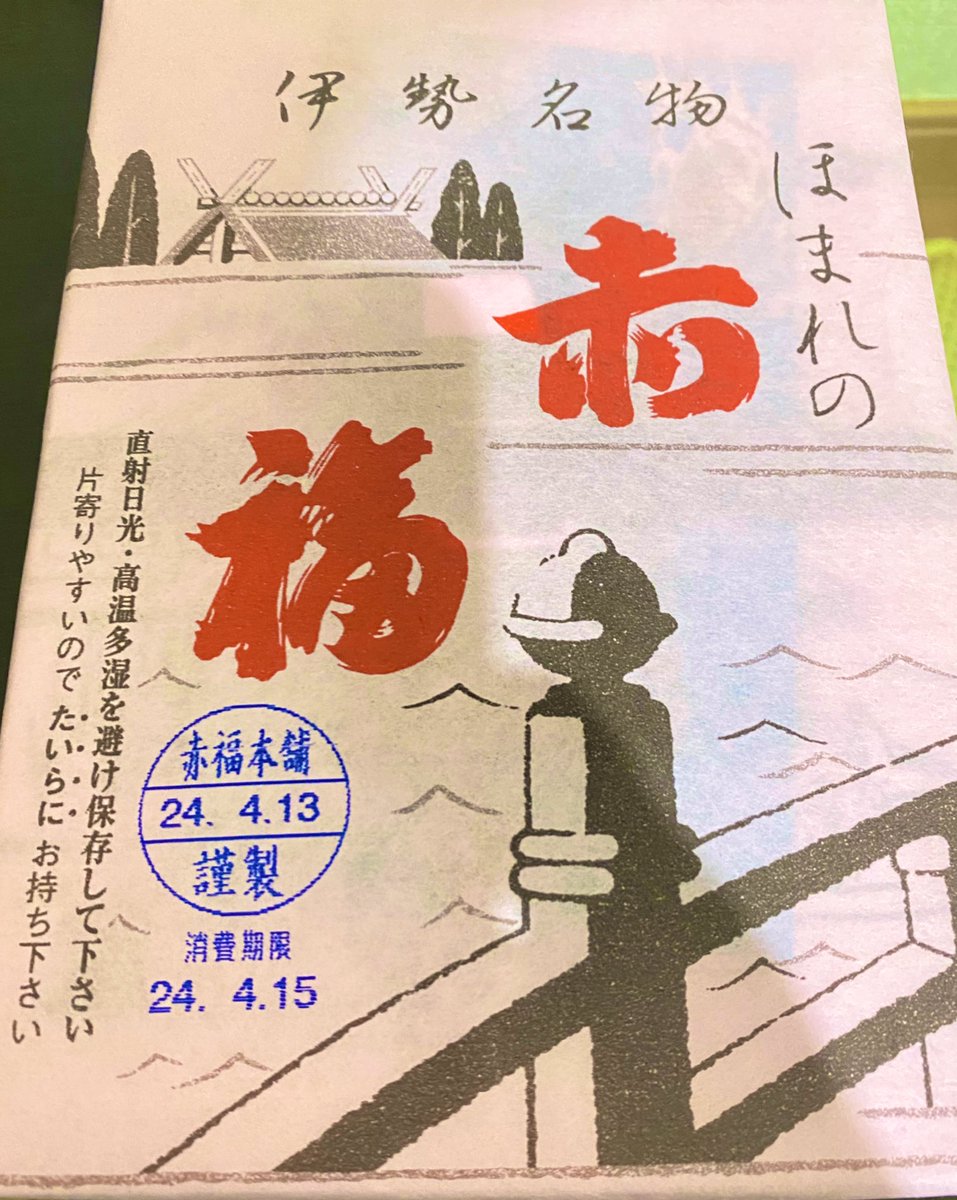 伊勢名物
ほまれの
赤
福
直射日光・高温多湿を避け保存して下さい
片寄りやすいのでたいらにお持ち下さい
赤福本舗
24. 4.13
謹製
消費期限
24. 4.15